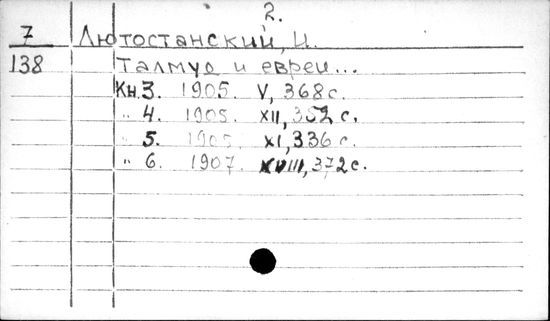 2.
7 Лютостанский, И.
138 Талмуд и евреи...
Кн. 3. 1905. V, 368 с.
" 4. 1905. XII, 352 с.
" 5. 1905. XI, 336 с.
" 6. 1907. XVIII, 372 с.